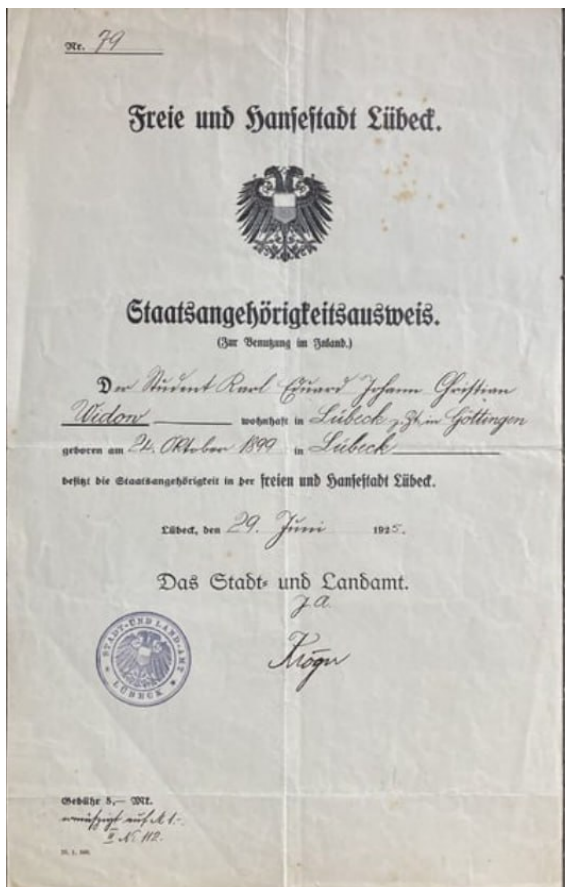 Nr. 79
Freie und Hansestadt Lübeck.
Staatsangehörigkeitsausweis.
(Zur Benutzung im Inland.)
Der Student Karl Eduard Johann Christian
Widow wohnhaft in Lübeck z. Zt. in Göttingen
geboren am 24. Oktober 1899 in Lübeck
besitzt die Staatsangehörigkeit in der freien und Hansestadt Lübeck.
Lübeck, den 29. Juni 1925.
Das Stadt- und Landamt.
J. A.
STADT-UND LAND-AMT
LÜBECK
Gebühr 5,— Mk.
ermäßigt auf M 1.-
II No 112.